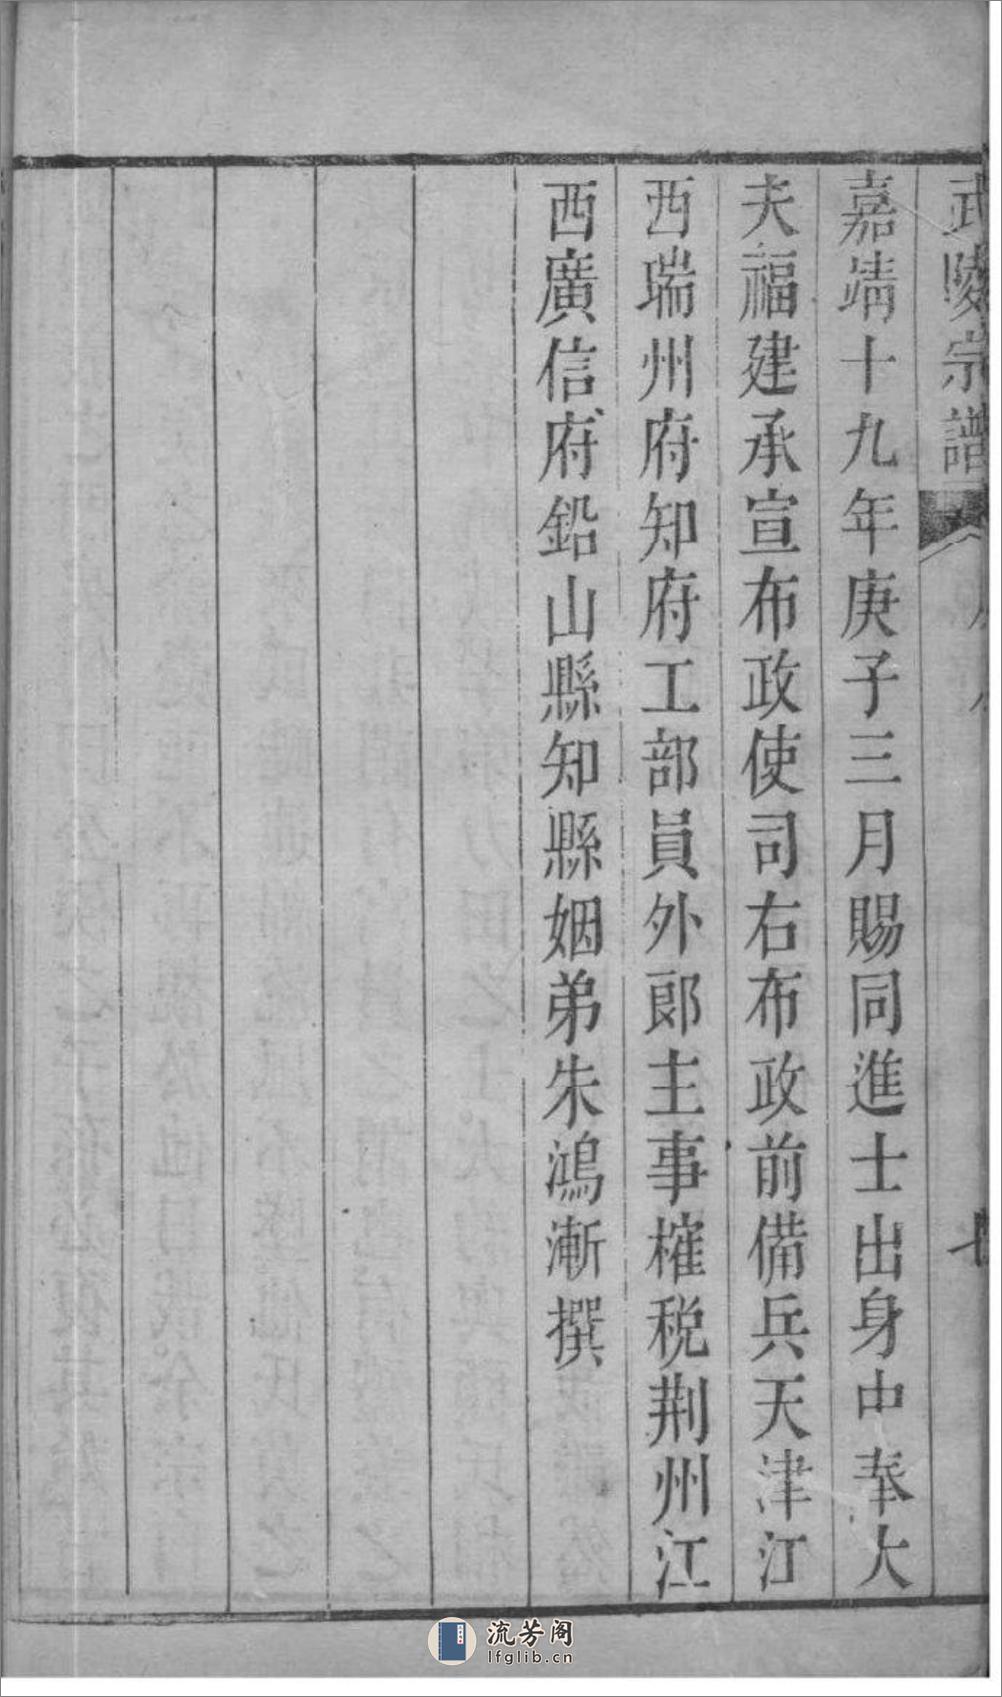 武陵宗譜
嘉靖十九年庚子三月賜同進士出身中奉大
夫福建承宣布政使司右布政前備兵天津江
西瑞州府知府工部員外郎主事榷税荆州江
西廣信府鉛山縣知縣姻弟朱鴻漸撰
流芳阁
lfglib.cn